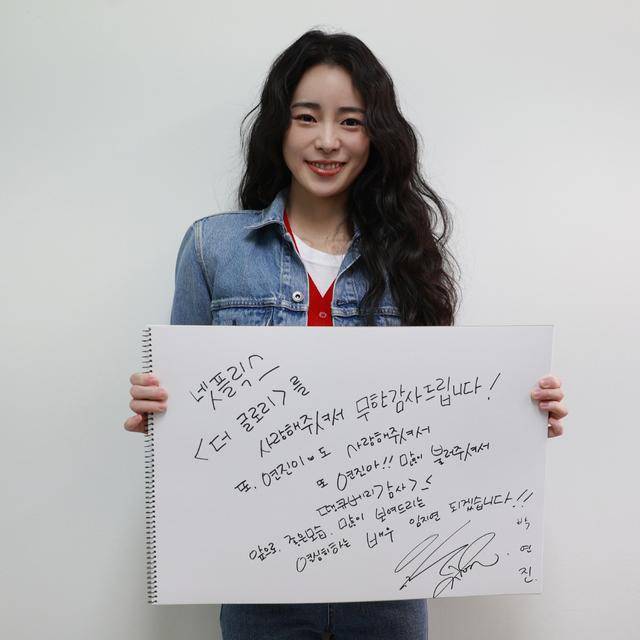 넷플릭스
<더 글로리>를
사랑해주셔서 무한감사드립니다!
또, 연진이도 사랑해주셔서
또 연진아!! 많이 불러주셔서
땡큐베리감사><
앞으로, 좋은모습, 많이 보여드리는
연심히하는 배우 임지연 되겠습니다!!
박
연
진.